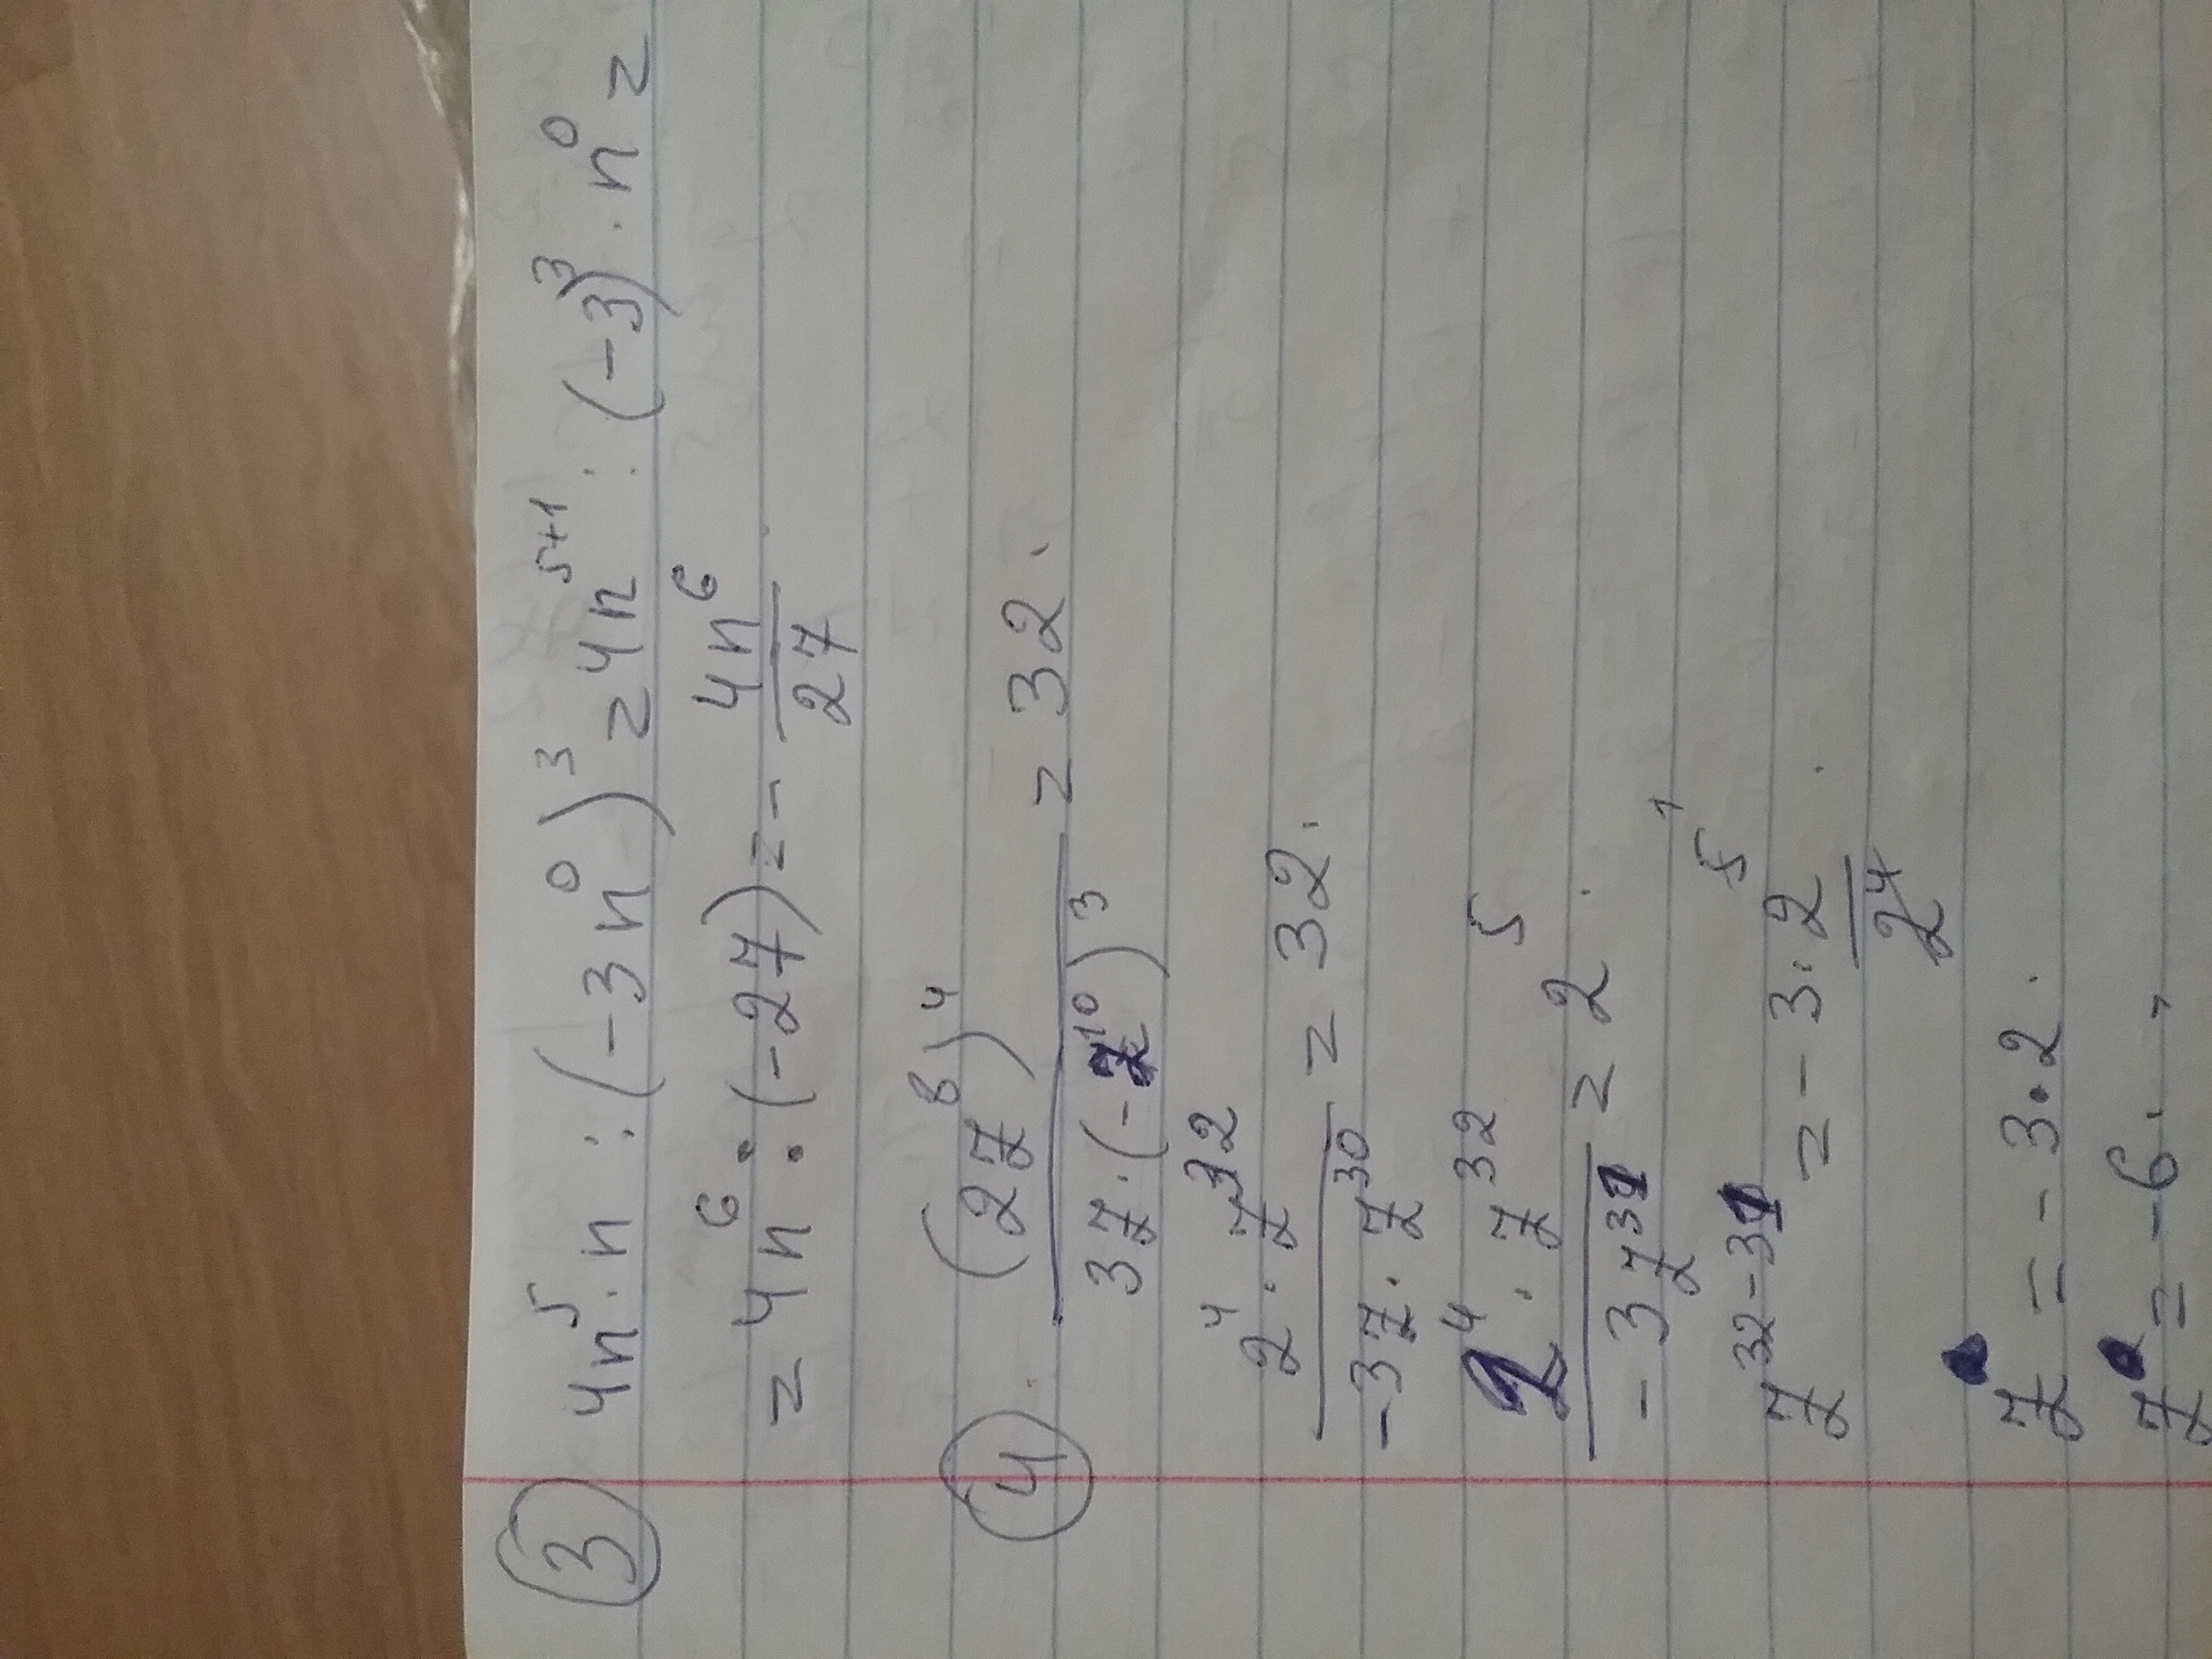 ③ 4n⁵·n : (-3n⁰)³ = 4n⁵⁺¹ : (-3)³ · n⁰ =
= 4n⁶ : (-27) = - 4n⁶/27.
④ (2z⁸)⁴ / 3z·(-z¹⁰)³ = 32.
2⁴·z³² / -3z·z³⁰ = 32.
2⁴·z³² / -3z³¹ = 2⁵.
z³²⁻³¹ = -3·2⁵/2⁴ ¹.
z = -3·2.
z = -6.